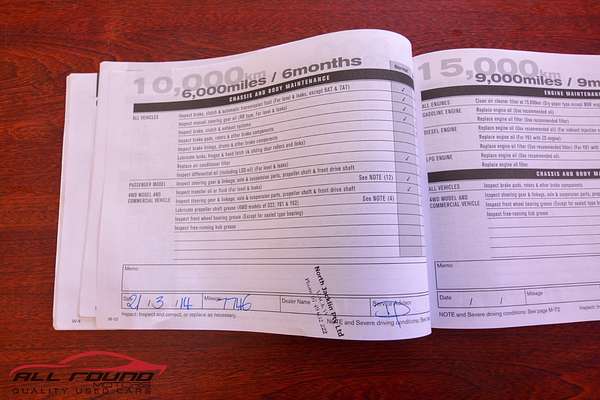 10,000km
6,000miles / 6months
CHASSIS AND BODY MAINTENANCE
ALL VEHICLES
Inspect brake, clutch & automatic transmission fluid (For level & leaks, except 8AT & 7AT)
Inspect manual steering gear oil (RB type, For level & leaks)
Inspect brake, clutch & exhaust systems
Inspect brake pads, rotors & other brake components
Inspect brake linings, drums & other brake components
Lubricate locks, hinges & hood latch (& sliding door rollers and links)
Replace air conditioner filter
Inspect differential oil (including LSD oil) (For level & leaks)
PASSENGER MODEL
Inspect steering gear & linkage, axle & suspension parts, propeller shaft & front drive shaft
See NOTE (12)
4WD MODEL AND COMMERCIAL VEHICLE
Inspect transfer oil or fluid (For level & leaks)
Inspect steering gear & linkage, axle & suspension parts, propeller shaft & front drive shaft
See NOTE (4)
Lubricate propeller shaft grease (4WD models of D22, Y61 & Y62)
Inspect front wheel bearing grease (Except for sealed type bearing)
Inspect free-running hub grease
Memo
Date
21 / 3 / 14
Mileage
7746
Dealer Name
North Jacklin Pty Ltd
Service Advisor
Inspect: Inspect and correct, or replace as necessary.
NOTE and Severe driving conditions: See page
15,000km
9,000miles / 9m
ENGINE MAINTEN
ALL ENGINES
GASOLINE ENGINE
Replace engine oil (Use recommended oil)
Replace engine oil filter (Use recommended filter)
DIESEL ENGINE
Replace engine oil filter (Use recommended filter)
LPG ENGINE
Replace engine oil (Use recommended oil).
Replace engine oil filter (Use recommended filter)
CHASSIS AND BODY M
ALL VEHICLES
Inspect brake pads, rotors & other brake components
4WD MODEL AND COMMERCIAL VEHICLE
Inspect steering gear & linkage, axle & suspension parts, propeller shaft
Inspect front wheel bearing grease (Except for sealed type
Inspect free-running hub grease
Memo
Date
/ /
Mileage
NOTE and Severe driving conditions: See page M-72
ALL ROUND
MOTORS
QUALITY USED CARS